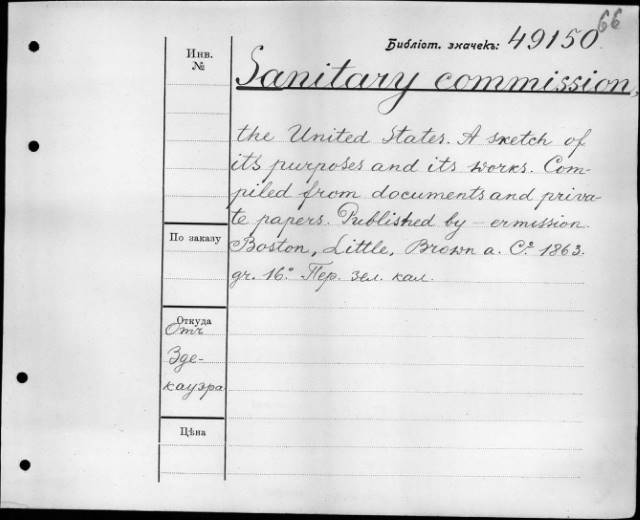 66
Библіот. значекъ: 49150
Инв.
№
Sanitary commission,
the United States. A sketch of
its purposes and its works. Com-
piled from documents and priva-
te papers. Published by -ermission.
Boston, Little, Brown a. Cº 1863.
gr. 16º Пер. зел. кал.
По заказу
Откуда
Отъ
Зде-
кауэра
Цѣна